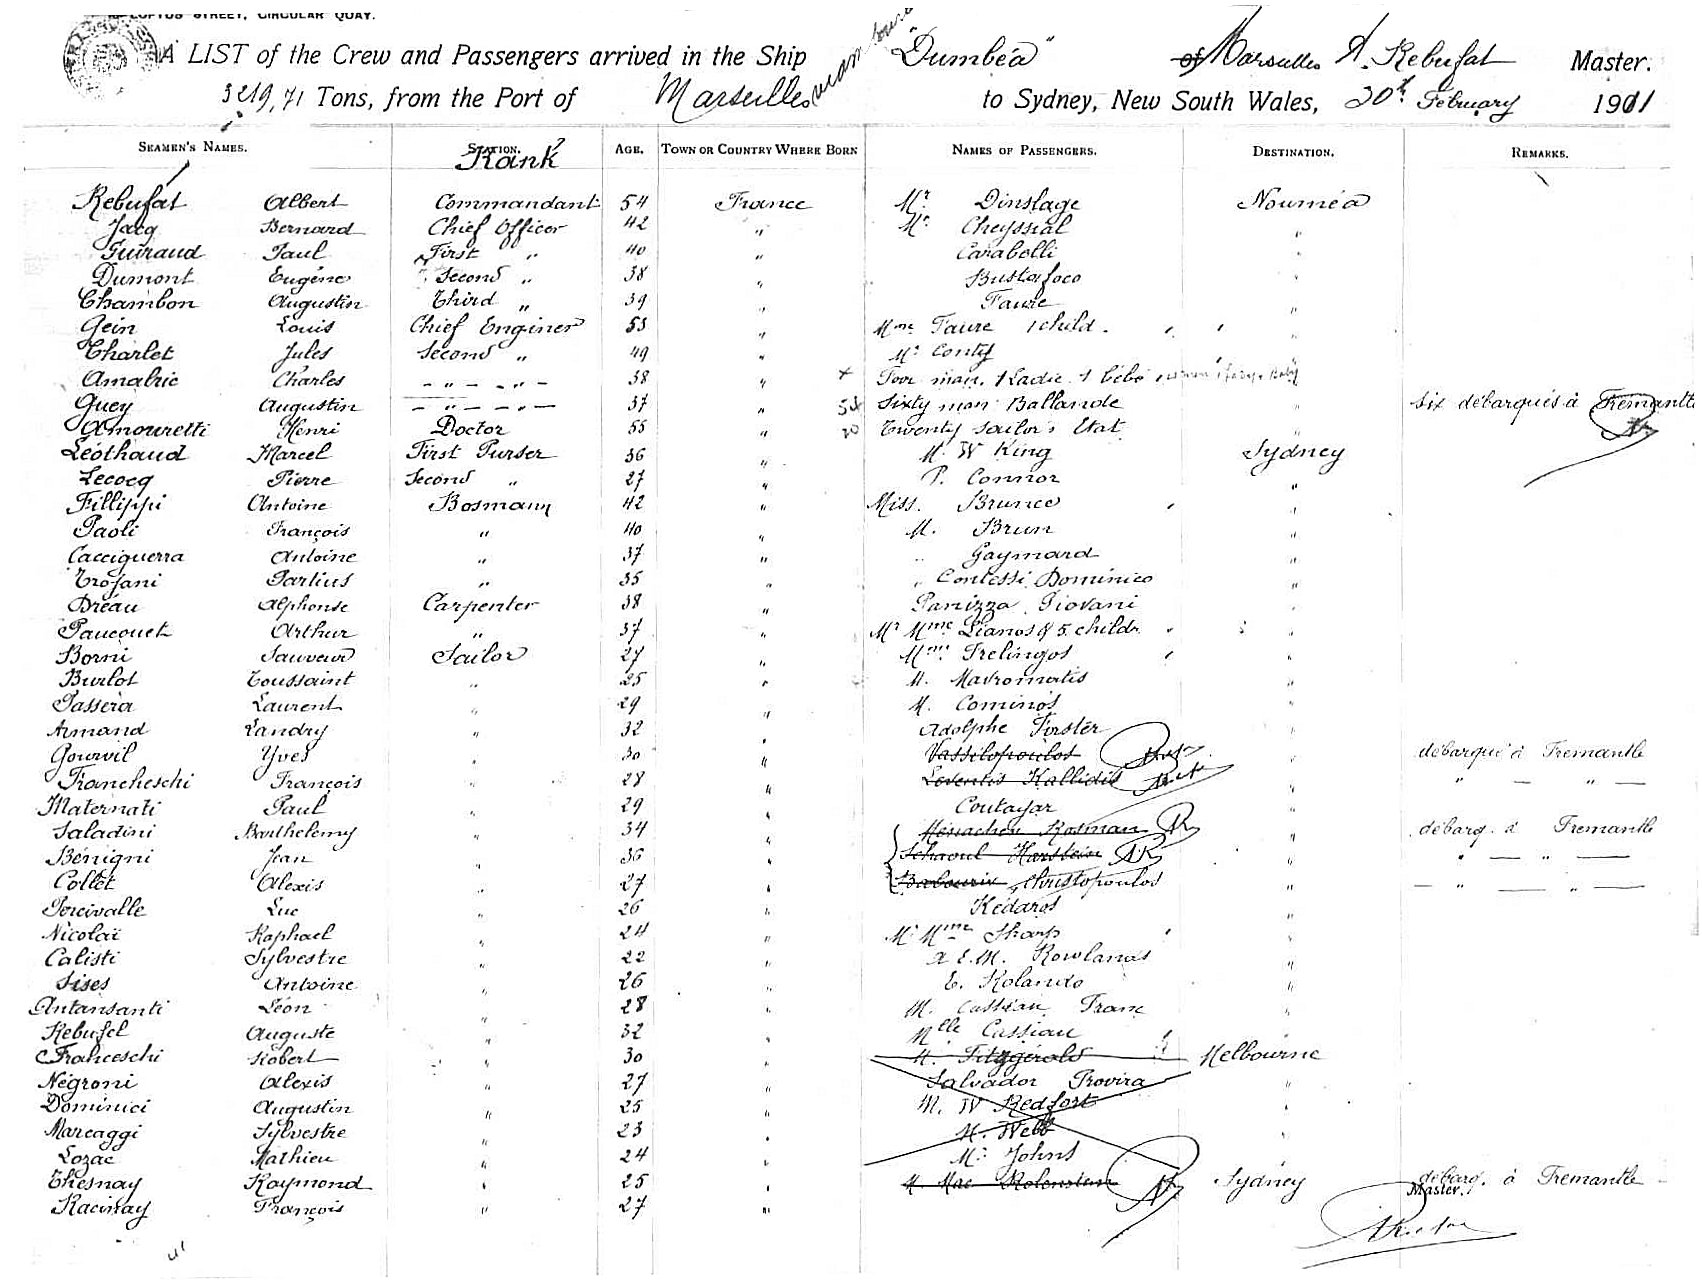 LOFTUS STREET, CIRCULAR QUAY.
A LIST of the Crew and Passengers arrived in the Ship "Dumbéa" of Marseilles A. Rebufat Master.
3219,71 Tons, from the Port of Marseilles to Sydney, New South Wales, 20th February 1911
SEAMEN'S NAMES. STATION. Rank AGE. TOWN OR COUNTRY WHERE BORN NAMES OF PASSENGERS. DESTINATION. REMARKS.
Rebufat Albert Commandant 54 France Mr. Dinslage Nouméa
Jacq Bernard Chief Officer 42 " Mr. Cheyssial "
Guiraud Paul First " 40 " Carabelli "
Dumont Eugène Second " 38 " Bustafoco "
Chambon Augustin Third " 39 " Faure "
Gein Louis Chief Enginer 53 " Mme Faure 1 child. "
Charlet Jules Second " 49 " Mr Conty "
Amalric Charles " " 38 " Foor man. 1 Ladie. 1 bébé
Guey Augustin " " 37 " 54 Sixty man Ballande " six débarqués à Fremantle
Amouretti Henri Doctor 55 " 20 Twenty sailor's Etat "
Léothaud Marcel First Purser 36 " M. W King Sydney
Lecocq Pierre Second " 27 " P. Connor "
Fillippi Antoine Bosmann 42 " Miss. Brunce "
Paoli François " 40 " M. Brun "
Cacciguerra Antoine " 37 " " Gaymard "
Trojani Parlius " 35 " " Contessi Dominico "
Dréau Alphonse Carpenter 38 " Panizza Giovani "
Paucouet Arthur " 37 " Mr Mme Lianos & 5 childr. "
Borni Sauveur Sailor 27 " Mme Frelingos "
Burlot Toussaint " 25 " M. Mavromatis "
Passera Laurent " 29 " M. Cominos "
Armand Landry " 32 " Adolphe Forster "
Gourvil Yves " 30 " Vassilopoulos " débarqué à Fremantle
Francheschi François " 28 " Leventis Kallidis " " — " —
Maternati Paul " 29 " Coutayar "
Saladini Barthelemy " 34 " Ménachen Rosman " débarq. à Fremantle
Bénigni Jean " 36 " Schaoul Harstein " " — " —
Collet Alexis " 27 " Christopoulos " — " — " —
Porcivalle Luc " 26 " Kédaros "
Nicolaï Raphael " 24 " Mr Mme Sharp "
Calisti Sylvestre " 22 " A E.M. Rowlands "
Sises Antoine " 26 " E. Rolando "
Antansanti Léon " 28 " M. Cassiau Franc "
Rebufel Auguste " 32 " Mlle Cassiau "
Franceschi Robert " 30 " M. Fitzgerald Melbourne
Négroni Alexis " 27 " Salvador Provira "
Dominici Augustin " 25 " M. W Redfort "
Marcaggi Sylvestre " 23 " M. Webb "
Lozac Mathieu " 24 " Mr Johns "
Thesnay Raymond " 25 " M. Mac Rolenstein Sydney débarq. à Fremantle
Racinay François " 27 " Master.